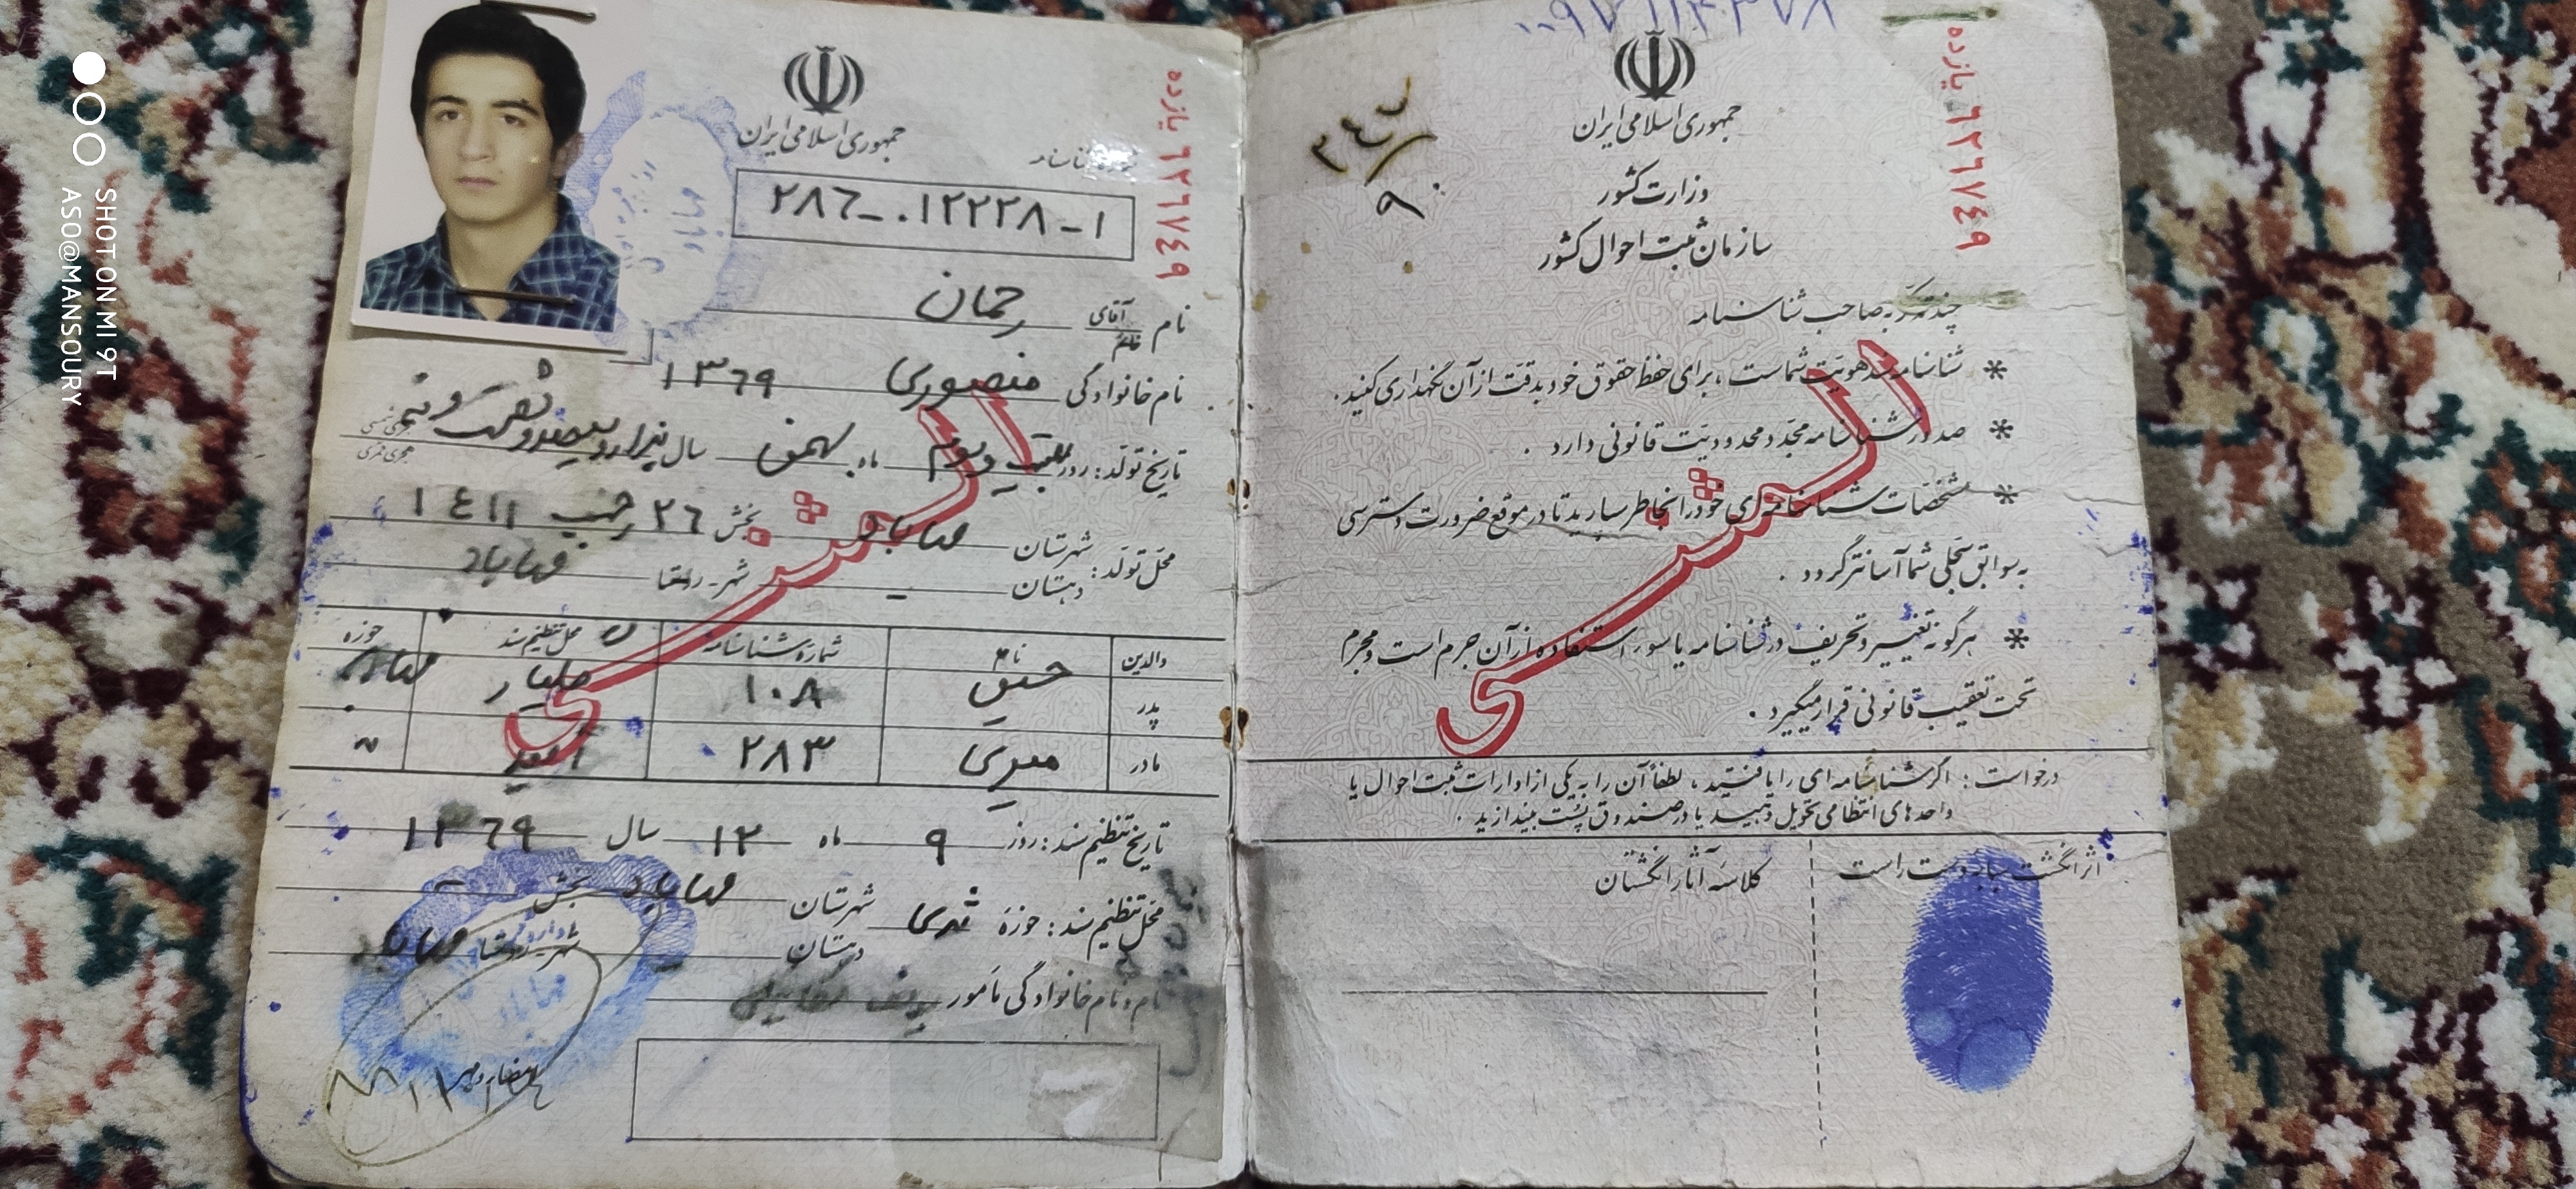 جمهوری اسلامی ایران
شماره شناسنامه
۲۸۶-۰۱۲۲۲۸-۱
یازده ۶۲۶۷۴۹
نام آقای خانم رحمان
نام خانوادگی منصوری ۱۳۶۹
تاریخ تولد: روز بیست و دوم ماه بهمن سال هزار و سیصد و شصت و نه هجری شمسی
هجری قمری
محل تولد: شهرستان مهاباد بخش ۲۶ رجب ۱۴۱۱
دهستان - شهر - روستا مهاباد
والدین نام شماره شناسنامه محل تنظیم سند حوزه
پدر ۱۰۸ مهاباد
مادر ۲۸۳
تاریخ تنظیم سند: روز ۹ ماه ۱۲ سال ۱۳۶۹
محل تنظیم سند: حوزه شهرستان مهاباد بخش
دهستان شهر - روستا مهاباد
نام و نام خانوادگی مأمور
امضاء و مهر
المثنی
۳۴۴/۹۰
جمهوری اسلامی ایران
وزارت کشور
سازمان ثبت احوال کشور
یازده ۶۲۶۷۴۹
چند تذکر به صاحب شناسنامه
* شناسنامه سند هویت شماست، برای حفظ حقوق خود بدقت از آن نگهداری کنید.
* صدور شناسنامه مجدد محدودیت قانونی دارد.
* مشخصات شناسنامه‌ای خود را بخاطر بسپارید تا در موقع ضرورت دسترسی
به سوابق سجلی شما آسانتر گردد.
* هرگونه تغییر و تحریف در شناسنامه یا سوء استفاده از آن جرم است و مجرم
تحت تعقیب قانونی قرار میگیرد.
المثنی
درخواست: اگر شناسنامه‌ای را یافتید، لطفاً آن را به یکی از ادارات ثبت احوال یا
واحدهای انتظامی تحویل دهید یا در صندوق پست بیندازید.
اثر انگشت سبابه دست راست
کلاسه آثار انگشتان
SHOT ON MI 9T
ASO@MANSOURY